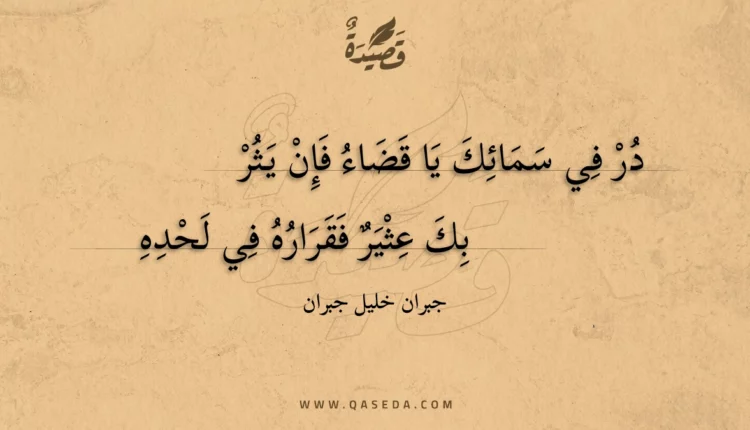 قَصِيدَةٌ
دُرْ فِي سَمَائِكَ يَا قَضَاءُ فَإِنْ يَثُرْ
بِكَ عِثْيَرٌ فَقَرَارُهُ فِي لَحْدِهِ
جبران خليل جبران
WWW.QASEDA.COM